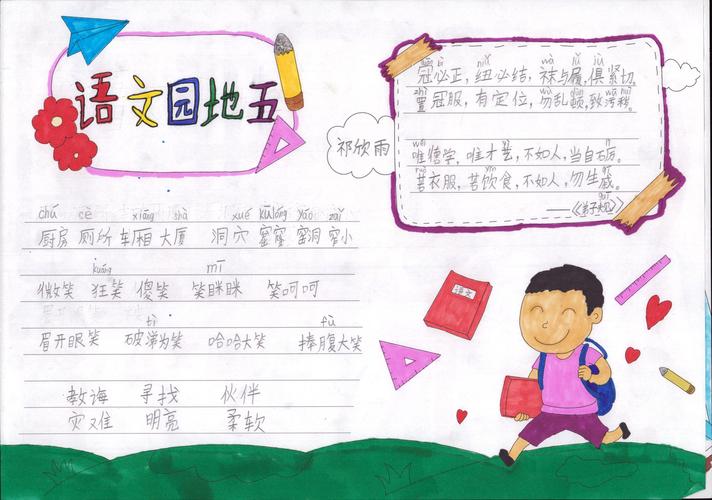 语文园地五
祁欣雨
chú cè xiāng shà xué kūlóng yáo zhǎi
厨房 厕所 车厢 大厦 洞穴 窟窿 窑洞 窄小
kuáng mī
微笑 狂笑 傻笑 笑眯眯 笑呵呵
tì fù
眉开眼笑 破涕为笑 哈哈大笑 捧腹大笑
教诲 寻找 伙伴
灾难 明亮 柔软
guān bì niǔ wà lǚ jù
冠必正,纽必结,袜与履,俱紧切。
zhì wū huì
置冠服,有定位,勿乱顿,致污秽。
wéi
唯德学,唯才艺,不如人,当自砺。
ruò yǐn qī
若衣服,若饮食,不如人,勿生戚。
——《弟子规》
语文